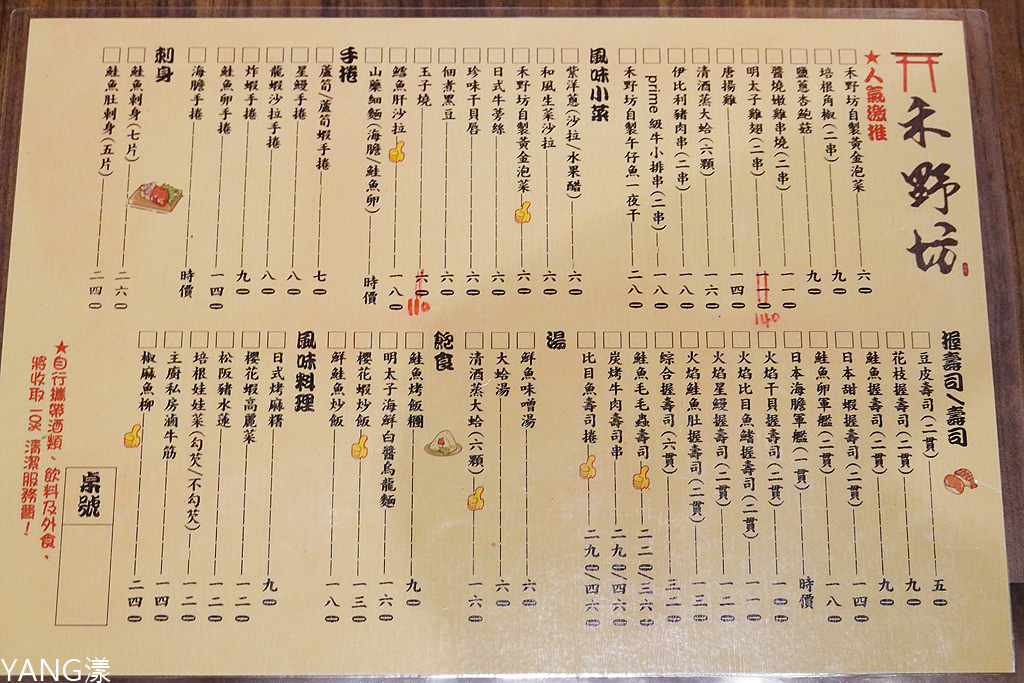 禾野坊
★人氣激推
□禾野坊自製黃金泡菜 六〇
□培根角椒(二串) 九〇
□鹽蔥杏鮑菇 九〇
□醬燒嫩雞串燒(二串) 一一〇
□明太子雞翅(二串) 一一〇 140
□唐揚雞 一四〇
□清酒蒸大蛤(六顆) 一六〇
□伊比利豬肉串(二串) 一八〇
□prime級牛小排串(二串) 一八〇
□禾野坊自製午仔魚一夜干 二八〇
風味小菜
□紫洋蔥(沙拉/水果醋) 六〇
□和風生菜沙拉 六〇
□禾野坊自製黃金泡菜 六〇
□日式牛蒡絲 六〇
□珍味干貝唇 六〇
□佃煮黑豆 六〇
□玉子燒 六〇 110
□鱈魚肝沙拉 一八〇
□山藥細麵(海膽/鮭魚卵) 時價
手捲
□蘆筍/蘆筍蝦手捲 七〇
□星鰻手捲 八〇
□龍蝦沙拉手捲 八〇
□炸蝦手捲 九〇
□鮭魚卵手捲 一四〇
□海膽手捲 時價
刺身
□鮭魚刺身(七片) 二六〇
□鮭魚肚刺身(五片) 二四〇
握壽司/壽司
□豆皮壽司(二貫) 五〇
□花枝握壽司(二貫) 九〇
□鮭魚握壽司(二貫) 九〇
□日本甜蝦握壽司(二貫) 一四〇
□鮭魚卵軍艦(二貫) 一八〇
□日本海膽軍艦(一貫) 時價
□火焰干貝握壽司(二貫) 一一〇
□火焰比目魚鰭握壽司(二貫) 一一〇
□火焰星鰻握壽司(二貫) 一二〇
□火焰鮭魚肚握壽司(二貫) 一三〇
□綜合握壽司(六貫) 三二〇
□鮭魚毛毛蟲壽司 二二〇/三六〇
□炭烤牛肉壽司串 二九〇/四六〇
□比目魚壽司捲 二九〇/四六〇
湯
□鮮魚味噌湯 六〇
□大蛤湯 六〇
□清酒蒸大蛤(六顆) 一六〇
飽食
□鮭魚烤飯糰 九〇
□明太子海鮮白醬烏龍麵 一六〇
□櫻花蝦炒飯 一三〇
□鮮鮭魚炒飯 一八〇
風味料理
□日式烤麻糬 九〇
□櫻花蝦高麗菜 一二〇
□松阪豬水蓮 一二〇
□培根娃娃菜(勾芡/不勾芡) 一二〇
□主廚私房滷牛筋 一四〇
□椒麻魚柳 二四〇
桌號
★自行攜帶酒類、飲料及外食，
將收取 10% 清潔服務費！
YANG漾